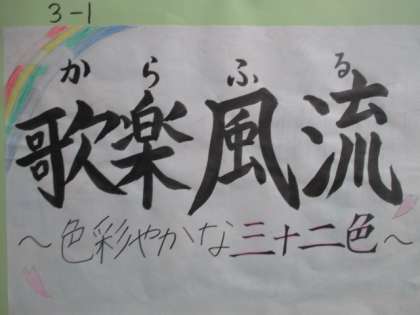 3-1
からふる
歌楽風流
～色彩やかな三十二色～